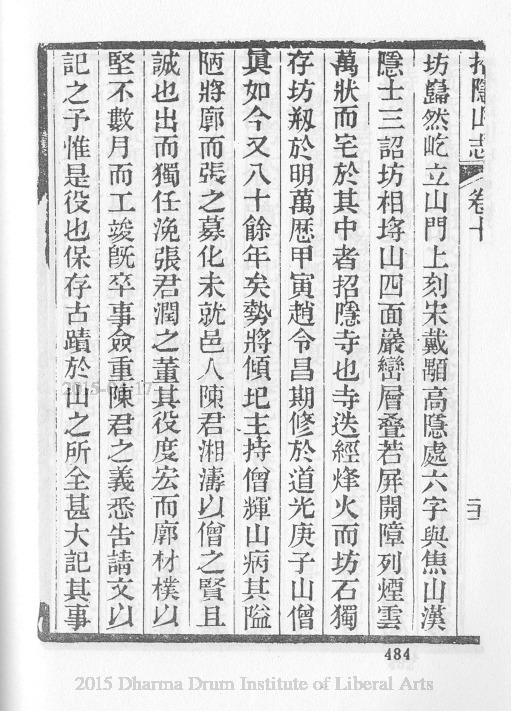 招隱山志 卷十 二十
坊巋然屹立山門上刻宋戴顒高隱處六字與焦山漢
隱士三詔坊相埒山四面巖巒層叠若屏開障列煙雲
萬狀而宅於其中者招隱寺也寺迭經烽火而坊石獨
存坊剏於明萬歷甲寅趙令昌期修於道光庚子山僧
眞如今又八十餘年矣勢將傾圮主持僧輝山病其隘
陋將廓而張之募化未就邑人陳君湘濤以僧之賢且
誠也出而獨任浼張君潤之董其役度宏而廓材樸以
堅不數月而工竣旣卒事僉重陳君之義悉吿請文以
記之予惟是役也保存古蹟於山之所全甚大記其事
484
2015 Dharma Drum Institute of Liberal Arts